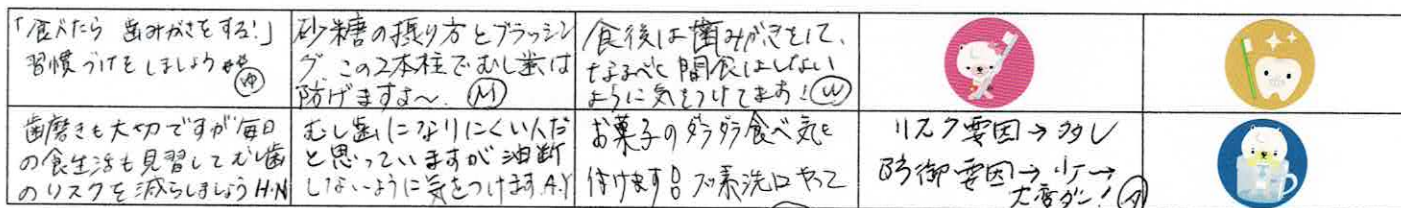 「食べたら 歯みがきをする!」
習慣づけをしましょう
ゆ
砂糖の摂り方とブラッシン
グ、この2本柱でむし歯は
防げますよ〜。 M
食後は歯みがきをして、
なるべく間食はしない
ように気をつけてます! W
歯磨きも大切ですが毎日
の食生活も見習してむし歯
のリスクを減らしましょうH.N
むし歯になりにくいんだ
と思っていますが油断
しないように気をつけます.A.Y
お菓子のダラダラ食べ気を
付けます!! フッ素洗口やって
リスク要因→多し
防御要因→少し→
大変ダー!